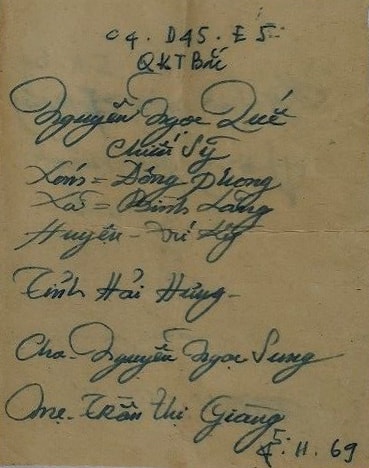 C4. D45. E5.
QKTBắc
Nguyễn Ngọc Quế
Chiến Sỹ
Xóm = Đông Phong
Xã = Bình Lãng
Huyện - Tứ Kỳ
Tỉnh Hải Hưng -
Cha - Nguyễn Ngọc Sung
Mẹ - Trần Thị Giàng
5. 11. 69